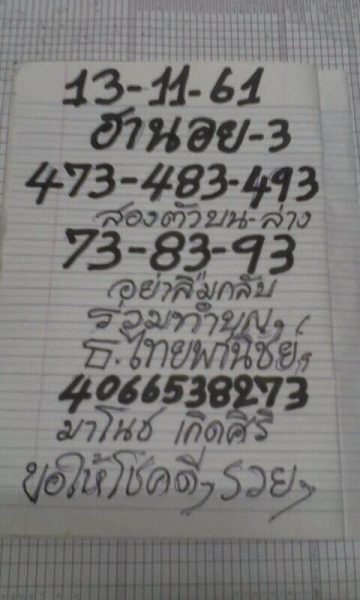 13-11-61
ฮานอย-3
473-483-493
สองตัวบน-ล่าง
73-83-93
อย่าลืมกลับ
ร่วมทำบุญ
ธ.ไทยพานิชย์
4066538273
มาโนช เกิดศิริ
ขอให้โชคดีๆรวยๆ